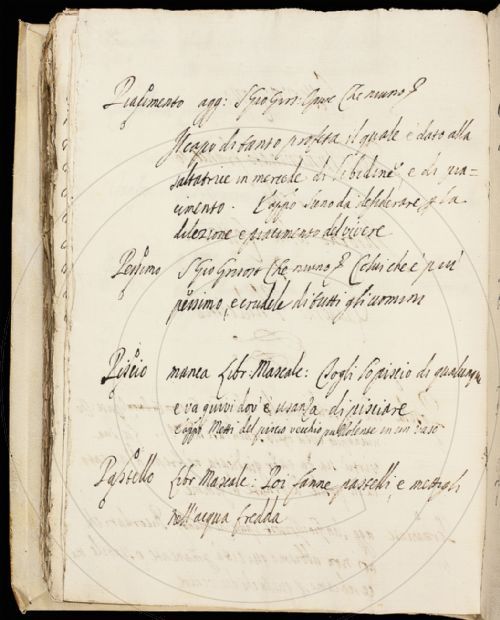 Piacimento agg: S Gio Gris: Che niuno
Il capo di santo profeta il quale è dato alla
saltatrice in mercede di libidine, e di pia-
cimento. E appo sono da desiderare p la
dilezione e piacimento del vivere
Pessimo S Gio Grisost Che niuno Colui che è più
pessimo, e crudele di tutti gli uomini
Piscio manca Libr: Mascalc: Togli lo piscio di qualunque
e va quivi dov'è usanza di pisciare
e appo Metti del piscio vecchio in un vaso
Pastello Libr Mascalc: Poi fanne pastelli, e mettigli
nell'acqua fredda